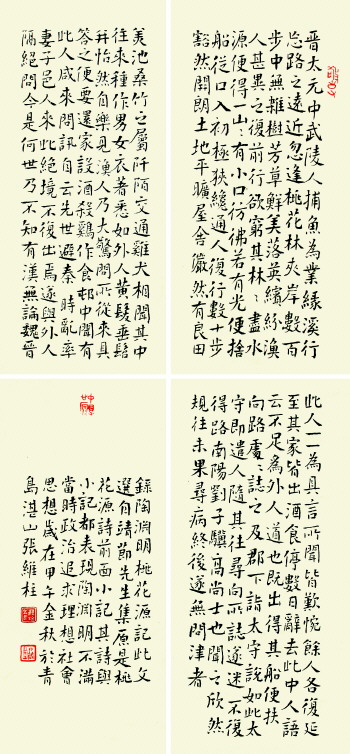 晉太元中武陵人捕魚為業緣溪行
忘路之遠近忽逢桃花林夾岸數百
步中無雜樹芳草鮮美落英繽紛漁
人甚異之復前行欲窮其林〻盡水
源便得一山〻有小口仿佛若有光便捨
船從口入初極狹纔通人復行數十步
豁然開朗土地平曠屋舍儼然有良田
美池桑竹之屬阡陌交通雞犬相聞其中
往來種作男女衣著悉如外人黃髮垂髫
并怡然自樂見漁人乃大驚問所從來具
答之便要還家設酒殺雞作食邨中聞有
此人咸來問訊自云先世避秦時亂率
妻子邑人來此絕境不復出焉遂與外人
隔絕問今是何世乃不知有漢無論魏晉
此人一一為具言所聞皆歎惋餘人各復延
至其家皆出酒食停數日辭去此中人語
云不足為外人道也既出得其船便扶
向路處〻誌之及郡下詣太守說如此太
守即遣人隨其往尋向所誌遂迷不復
得路南陽劉子驥高尚士也聞之欣然
規往未果尋病終後遂無問津者
錄陶淵明桃花源記此文
選自靖節先生集原是桃
花源詩前面小記其詩與
小記都表現陶淵明不滿
當時政治追求理想社會
思想歲在甲午金秋於青
島湛山張維柱